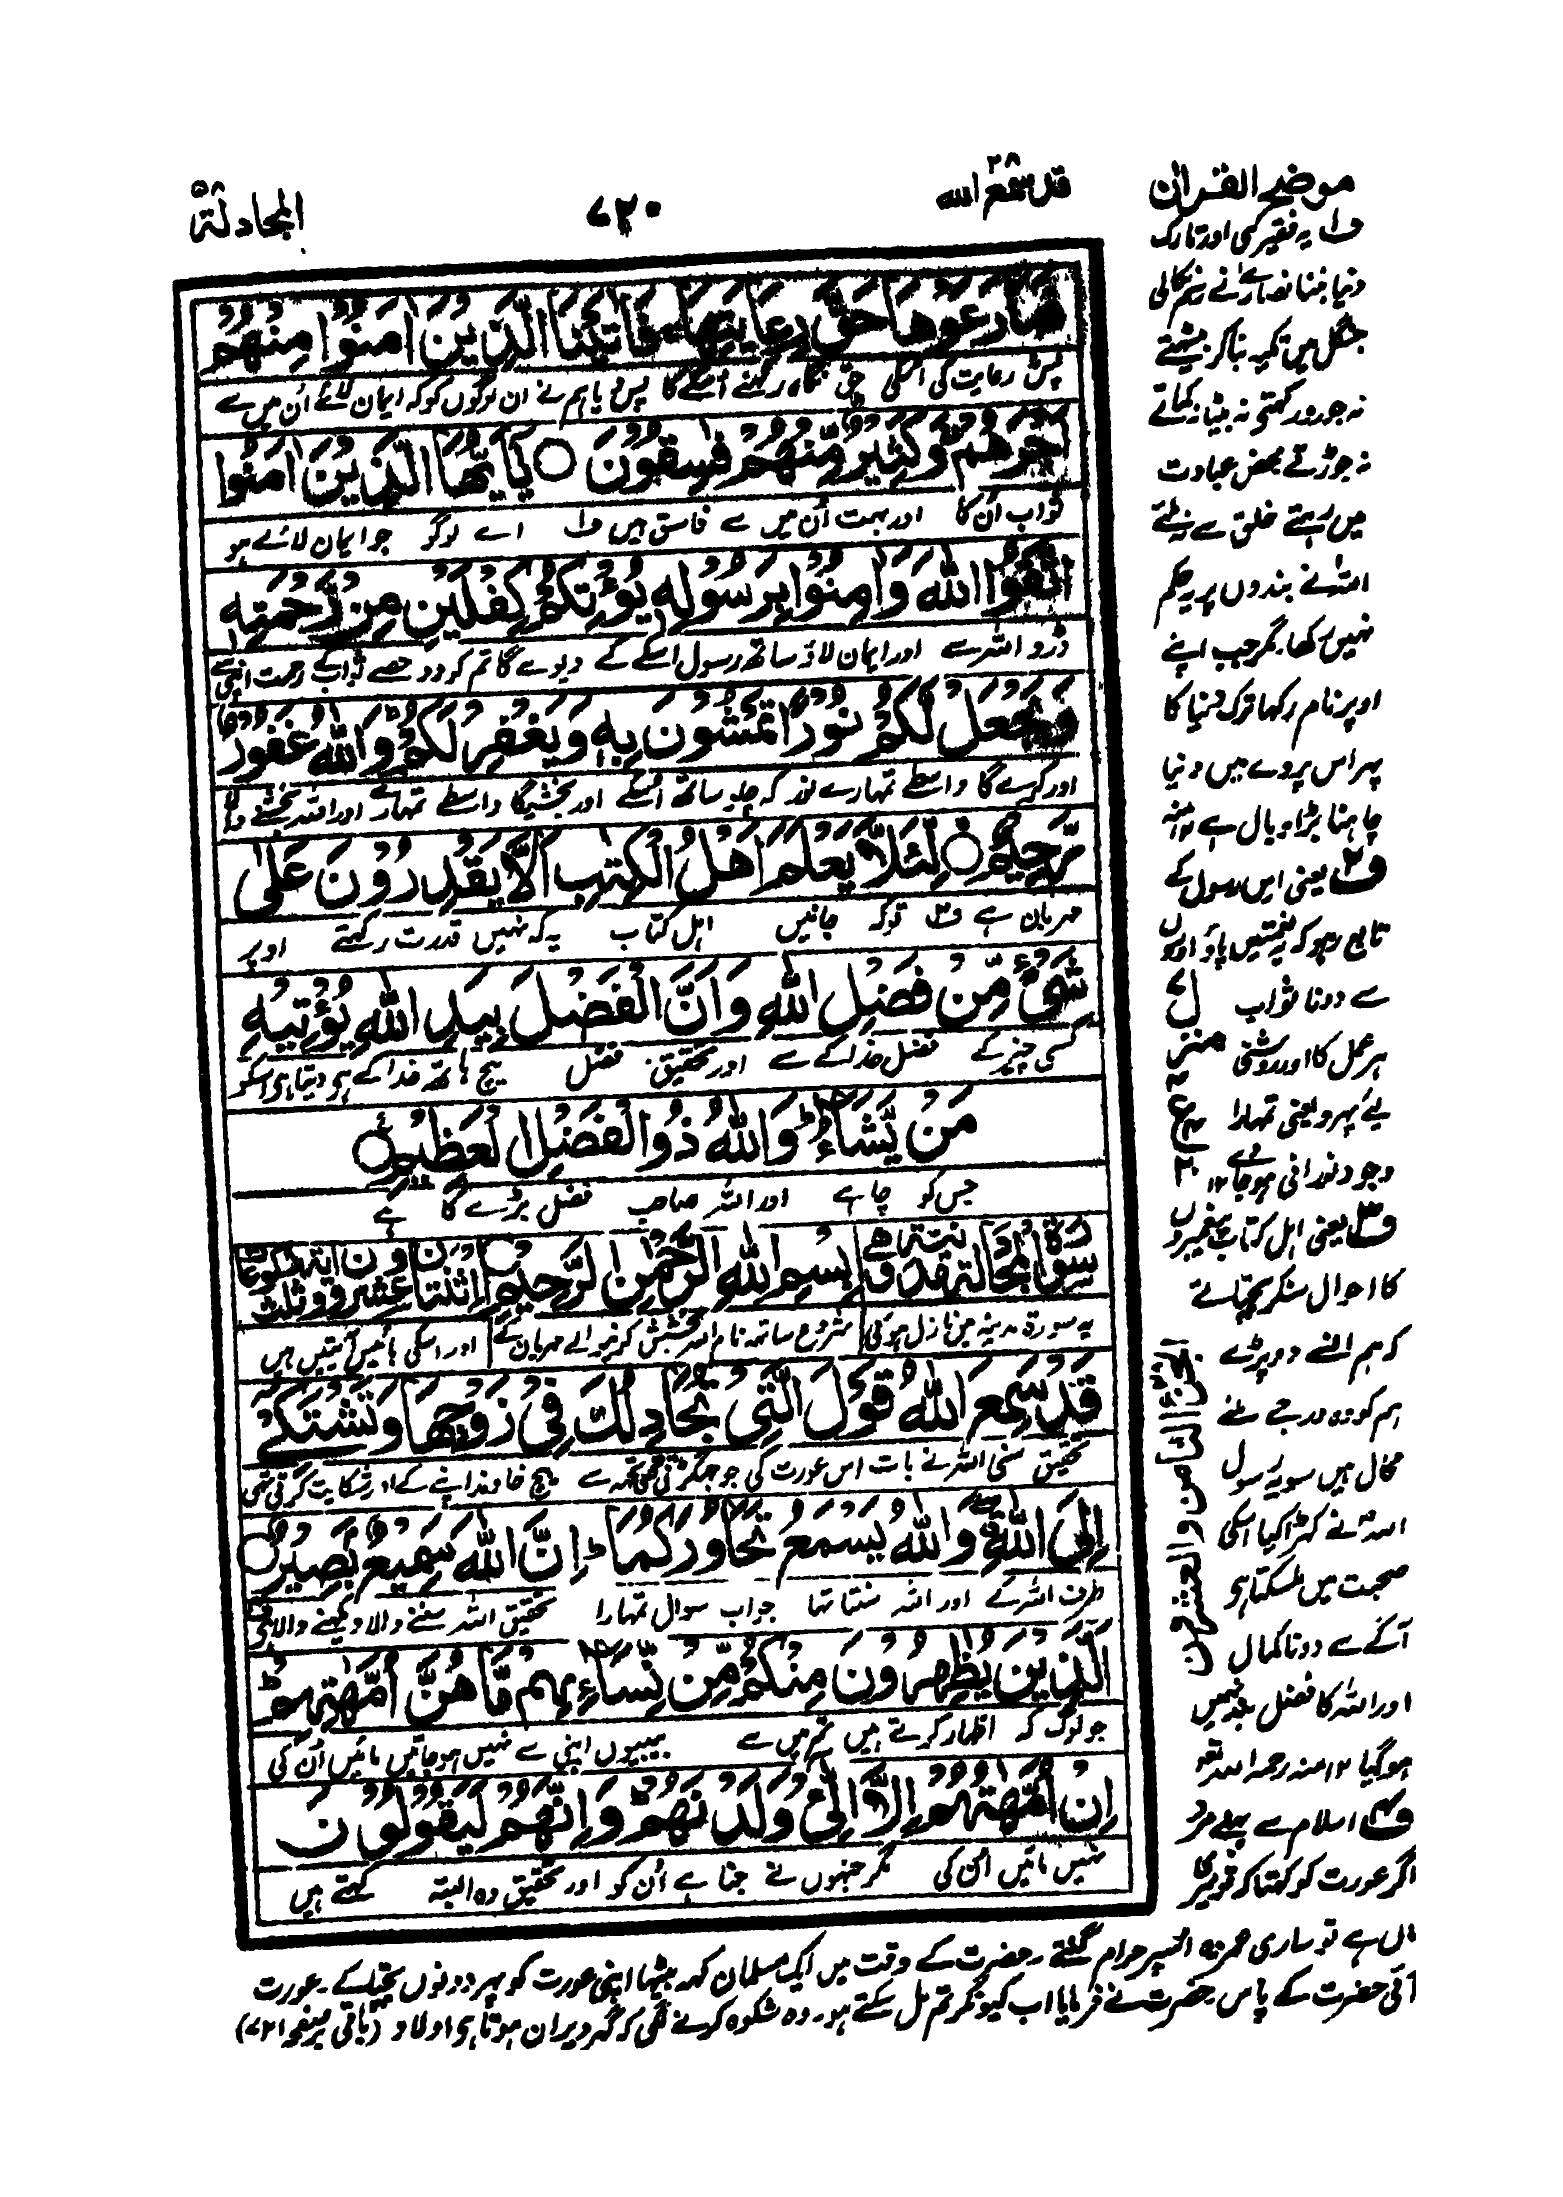 قد سمع الله ٢٨
٧٢٠
المجادلة ٥٨
موضح القران
فَمَا رَعَوْهَا حَقَّ رِعَايَتِهَا ۚ فَاٰتَيْنَا الَّذِيْنَ اٰمَنُوْا مِنْهُمْ
پس نہ رعایت کی اسکی حق نگاہ رکھنے اسکے کا پس دیا ہم نے ان لوگوں کو کہ ایمان لائے اُن میں سے
اَجْرَهُمْ ۚ وَكَثِيْرٌ مِّنْهُمْ فٰسِقُوْنَ ○ يٰٓاَيُّهَا الَّذِيْنَ اٰمَنُوا
ثواب اُن کا اور بہت اُن میں سے فاسق ہیں ف۱ اے لوگو جو ایمان لائے ہو
اتَّقُوا اللّٰهَ وَاٰمِنُوْا بِرَسُوْلِهٖ يُؤْتِكُمْ كِفْلَيْنِ مِنْ رَّحْمَتِهٖ
ڈرو اللہ سے اور ایمان لاؤ ساتھ رسول اسکے کے دیوے گا تم کو دو حصے ثواب کے رحمت اپنی سے
وَيَجْعَلْ لَّكُمْ نُوْرًا تَمْشُوْنَ بِهٖ وَيَغْفِرْ لَكُمْ ۗ وَاللّٰهُ غَفُوْرٌ
اور کرے گا واسطے تمہارے نور کہ چلو ساتھ اسکے اور بخشیگا واسطے تمہارے اور اللہ بخشنے والا
رَّحِيْمٌ ○ لِّئَلَّا يَعْلَمَ اَهْلُ الْكِتٰبِ اَلَّا يَقْدِرُوْنَ عَلٰى
مہربان ہے ف۲ توکہ جانیں اہل کتاب یہ کہ نہیں قدرت رکھتے اوپر
شَيْءٍ مِّنْ فَضْلِ اللّٰهِ وَاَنَّ الْفَضْلَ بِيَدِ اللّٰهِ يُؤْتِيْهِ
کسی چیز کے فضل خدا کے سے اور تحقیق فضل بیچ ہاتھ خدا کے ہی دیتا ہی اسکو
مَنْ يَّشَآءُ ۗ وَاللّٰهُ ذُو الْفَضْلِ الْعَظِيْمِ ○
جس کو چاہے اور اللہ صاحب فضل بڑے کا ہے
بِسْمِ اللّٰهِ الرَّحْمٰنِ الرَّحِيْمِ
یہ سورۃ مدینہ میں نازل ہوئی شروع ساتھ نام اللہ بخشش کرنیوالے مہربان کے اور اسکی بائیس آیتیں ہیں
قَدْ سَمِعَ اللّٰهُ قَوْلَ الَّتِيْ تُجَادِلُكَ فِيْ زَوْجِهَا وَتَشْتَكِيْٓ
تحقیق سنی اللہ نے بات اس عورت کی جو جھگڑتی تھی تجھ سے بیچ خاوند اپنے کے اور شکایت کرتی تھی
اِلَى اللّٰهِ ۖ وَاللّٰهُ يَسْمَعُ تَحَاوُرَكُمَا ۗ اِنَّ اللّٰهَ سَمِيْعٌۢ بَصِيْرٌ ○
طرف اللہ کے اور اللہ سنتا تھا جواب سوال تمہارا تحقیق اللہ سننے والا دیکھنے والا ہی
اَلَّذِيْنَ يُظٰهِرُوْنَ مِنْكُمْ مِّنْ نِّسَآئِهِمْ مَّا هُنَّ اُمَّهٰتِهِمْ ۗ
جو لوگ کہ اظہار کرتے ہیں تم میں سے بیبیوں اپنی سے نہیں ہوجاتیں مائیں اُن کی
اِنْ اُمَّهٰتُهُمْ اِلَّا الّٰٓـِٔيْ وَلَدْنَهُمْ ۗ وَاِنَّهُمْ لَيَقُوْلُوْنَ
نہیں مائیں اُن کی مگر جنہوں نے جنا ہے اُن کو اور تحقیق وہ البتہ کہتے ہیں
ف۱ یہ فقیری اور تارک
دنیا بننا نصاریٰ نے رسم نکالی
جنگل میں تکیہ بناکر بیٹھتے
نہ جورو رکھتے نہ بیٹا نہ کماتے
نہ جوڑتے محض عبادت
میں رہتے خلق سے نہ ملتے
اللہ نے بندوں پر یہ حکم
نہیں رکھا۔ مگر جب اپنے
اوپر نام رکھا ترک دنیا کا
پھر اس پردے میں دنیا
چاہنا بڑا وبال ہے ۱۲منہ
ف۲ یعنی اس رسول کے
تابع رہو کہ یہ نعمتیں پاؤ
سے دونا ثواب
ہر عمل کا اور روشنی
لیے پھرو یعنی تمہارا
وجود نورانی ہوجائے ۱۲
ف۳ یعنی اہل کتاب پیغمبروں
کا احوال سنکر پچتاتے
کہ ہم اُنسے دور پڑے
ہم کو وہ درجے ملنے
محال ہیں سو یہ رسول
اللہ نے کھڑا کیا اسکی
صحبت میں مل سکتا ہی
آگے سے دونا کمال
اور اللہ کا فضل بند نہیں
ہو گیا ۱۲ منہ رحمہ اللہ تعہ
ف۴ اسلام سے پہلے مرد
اگر عورت کو کہتا کہ تو میری
ماں ہے تو ساری عمر وہ اسپر حرام گنتے۔ حضرت کے وقت میں ایک مسلمان کہہ بیٹھا اپنی عورت کو پھر دونوں پچتائے۔ عورت
آئی حضرت کے پاس حضرت نے فرمایا اب کیونکر تم مل سکتے ہو۔ وہ شکوہ کرنے لگی کہ گھر ویران ہوتا ہی اولاد (باقی بر صفحہ ۷۲۱)
منزل
الجزء الثامن والعشرون